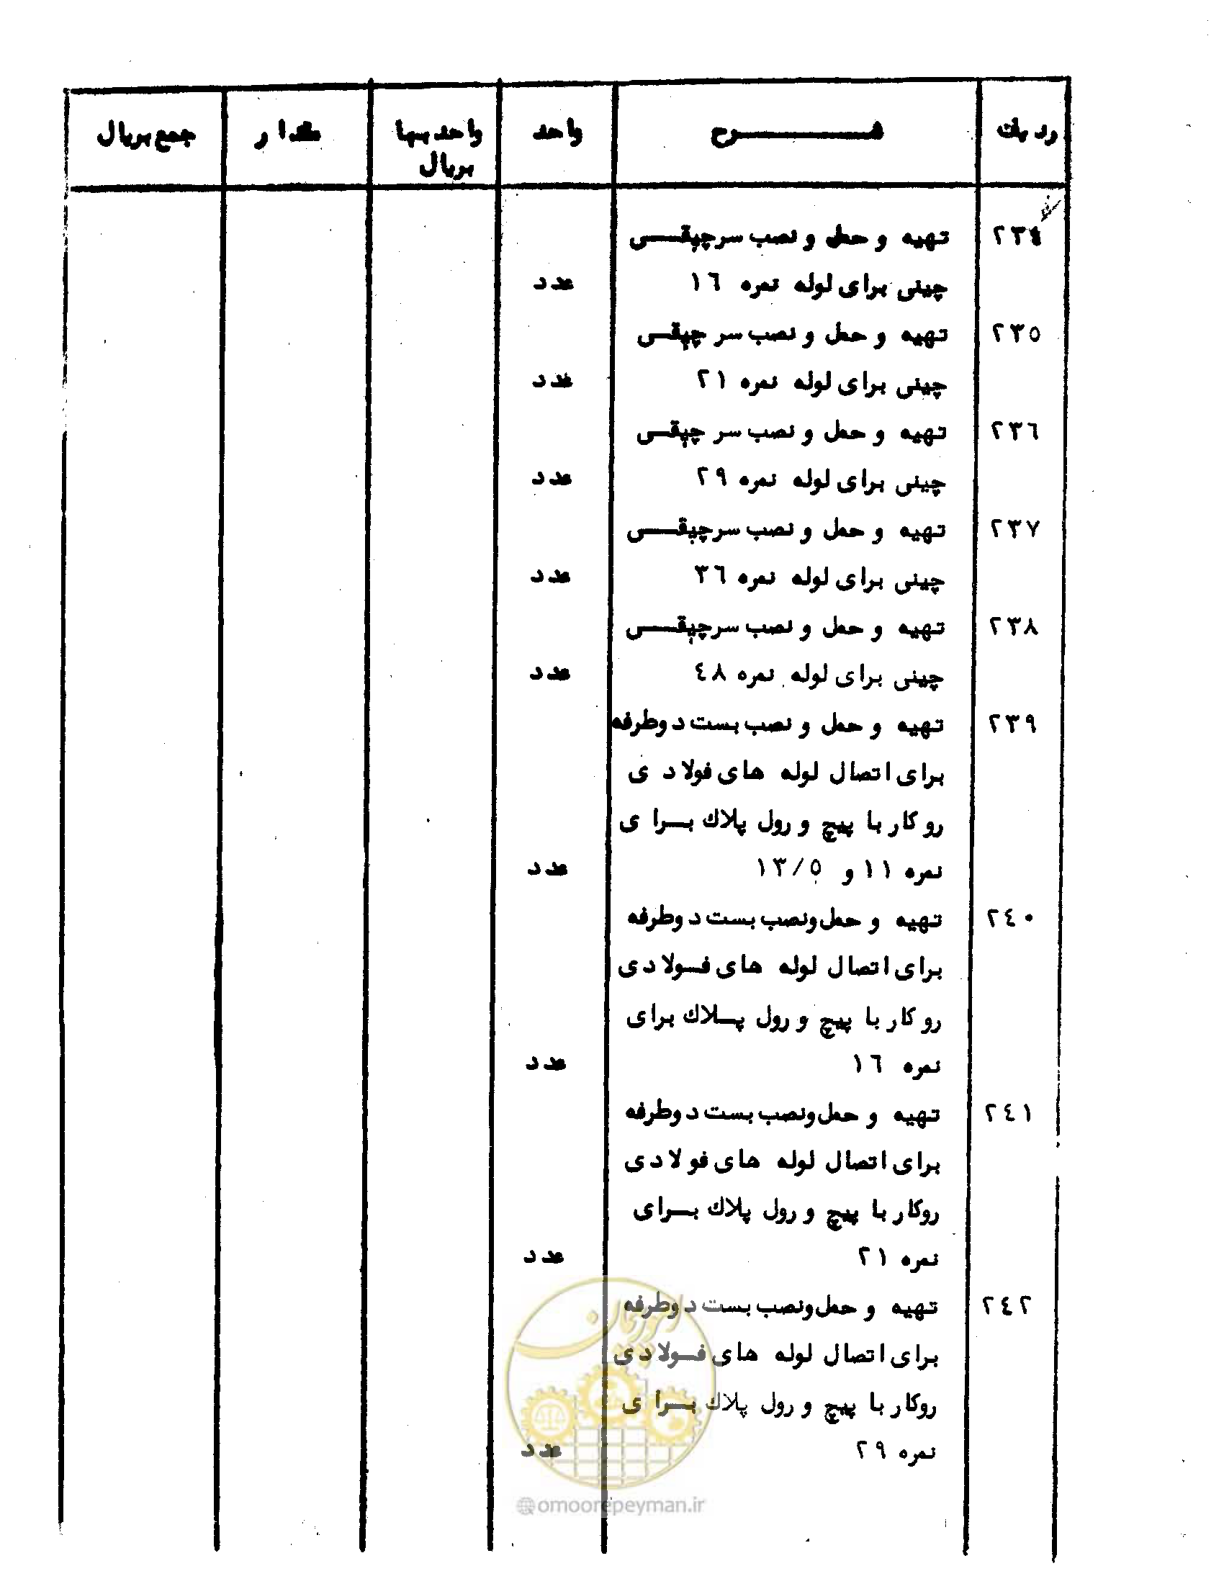 ردیف شرح واحد واحد بها بریال مقدار جمع بریال
۲۳٤ تهیه و حمل و نصب سرچپقی
چینی برای لوله نمره ۱٦ عدد
۲۳۵ تهیه و حمل و نصب سر چپقی
چینی برای لوله نمره ۲۱ عدد
۲۳٦ تهیه و حمل و نصب سر چپقی
چینی برای لوله نمره ۲۹ عدد
۲۳۷ تهیه و حمل و نصب سرچپقی
چینی برای لوله نمره ۳٦ عدد
۲۳۸ تهیه و حمل و نصب سرچپقی
چینی برای لوله نمره ٤۸ عدد
۲۳۹ تهیه و حمل و نصب بست دوطرفه
برای اتصال لوله های فولادی
رو کار با پیچ و رول پلاك برای
نمره ۱۱ و ۱۳/۵ عدد
۲٤۰ تهیه و حمل ونصب بست دوطرفه
برای اتصال لوله های فولادی
رو کار با پیچ و رول پلاك برای
نمره ۱٦ عدد
۲٤۱ تهیه و حمل ونصب بست دوطرفه
برای اتصال لوله های فولادی
روکار با پیچ و رول پلاك برای
نمره ۲۱ عدد
۲٤۲ تهیه و حمل ونصب بست دوطرفه
برای اتصال لوله های فولادی
روکار با پیچ و رول پلاك برای
نمره ۲۹ عدد
امور پیمان
omoorepeyman.ir